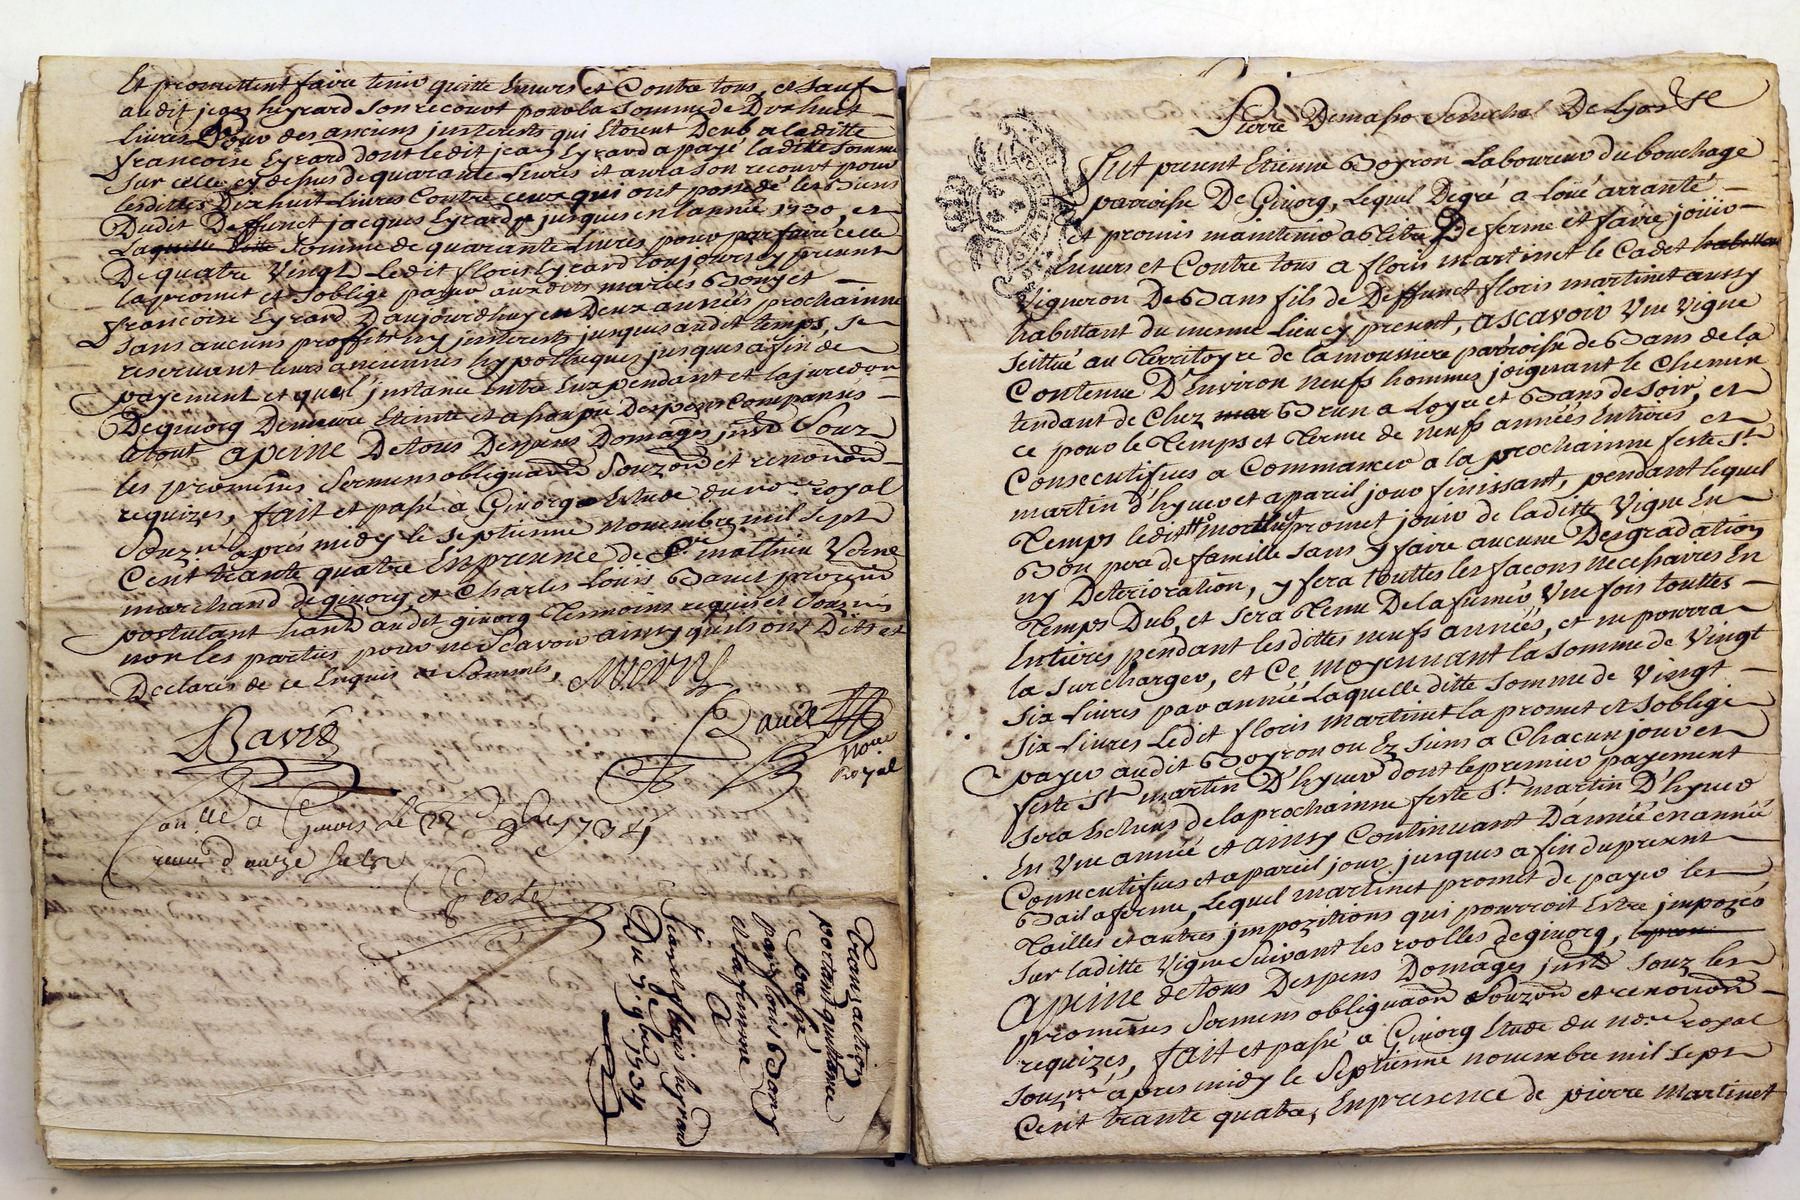 Et promettent faire tenir quitte Envers et Contre tous, et sauf
audit jean heyrard son recourt pour la somme de Dixhuit
Livres pour des anciens jnterests qui Etoient Deub a laditte
francoise Eyrard dont ledit jean Eyrard a payé laditte somme
sur celle cy dessus de quarante Livres et aura son recourt pour
lesdittes Dixhuit Livres Contre ceux qui ont possedé les Biens
Dudit Deffunct jacques Eyrard jusques en l'année 1730, et
somme de quarante Livres pour parfaire celle
De quatre Vingt Ledit floris Eyrard toujours cy present
la promet et s'oblige payer auxdits mariés Bony et
francoise Eyrard D'aujourdhuy en Deux années prochainne
sans aucuns proffits ny jnterests jusques audit temps, se
reservant leurs anciennes hypotheques jusques a fin de
payement et quoy l'jnstance Entre Eux pendant et la juredon
De givorg Demeure Eteinte et assoupie Despens Compansés
about apeine De tous Despens Domages Souz
les promesses Sermens obliguaon Souzon et renonon
requizes, fait et passé à Givorg Estude du nore royal
Souzné après midy le septienne novembre mil sept
Cent trante quatre En presence de Sr mathieu Verne
marchand de givorg et Charles Loüis Bavet
postulant audit givorg Temoins requis et Souznés
non les parties pour ne scavoir ainsy qu'ils ont Dit et
Declarés de ce Enquis et Sommés,
Baudé
nore
Royal
a Givors le 22 9bre 1734
recu douze sols
Transaction
passé
portant quittance
par floris Bony
et sa femme
A
jean et floris heyrard
Du 7 9bre 1734
Pierre Demasso Senechal De Lyon
Fut present Etienne Boyron Laboureur du bouchage
parroisse De Givorg, Lequel De gré a Loüé arranté
et promis maintenir a titre De ferme et faire joüir
Envers et Contre tous a floris martinet le Cadet
Vigneron De Bans fils de Deffunct floris martinet aussy
habittant du mesme Lieu cy present, ascavoir Vne Vigne
seittué au Territoyre de la moussiere parroisse de Bans de la
Contenue D'Environ neufs hommes joignant le Chemin
tendant de Chez Brun a Loyre et Bans de soir, et
ce pour le Temps et Terme de neufs années Entieres et
Consecutifues a Commancer a la prochainne feste St
martin d'hyver et a pareil jour finissant, pendant lequel
Temps ledit promet jouir de laditte Vigne En
Bon pere de famille sans y faire aucune Desgradation
ny Deterioration, y fera touttes les facons necessaires En
Temps Dub, et sera Tenu De la fumer Vne fois touttes
Entieres pendant lesdittes neufs années, et ne pourra
la surcharger, et Ce moyennant la somme de Vingt
six Livres par année Laquelle ditte somme de Vingt
six Livres Ledit floris martinet la promet et s'oblige
payer audit Boyron ou Ez siens a Chacun jour et
feste St martin D'hyver dont le premier payement
sera Echeus de la prochainne feste St martin D'hyver
En Vne année et ainsy Continuant D'année en année
Consecutifues et a pareil jour jusques a fin du present
Bail a ferme, Lequel martinet promet de payer les
Tailles et autres jmpozitions qui pourroit Estre jmpozés
sur laditte Vigne suivant les roolles de givorg,
a peine de tous Despens Domages Souz les
promesses Sermens obliguaon Souzon et renonon
requizes, fait et passé a Givorg Etude du nore royal
Souzné après midy le septienne novembre mil sept
Cent trante quatre, En presence de pierre martinet